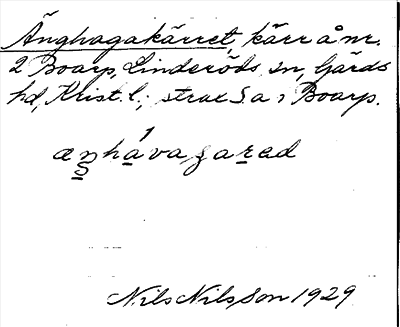 Änghagakärret, kärr å nr.
2 Boarp, Linderöds sn, Gärds
hd, Krist. l.; strax S a 1 Boarp.
Nils Nilsson 1929